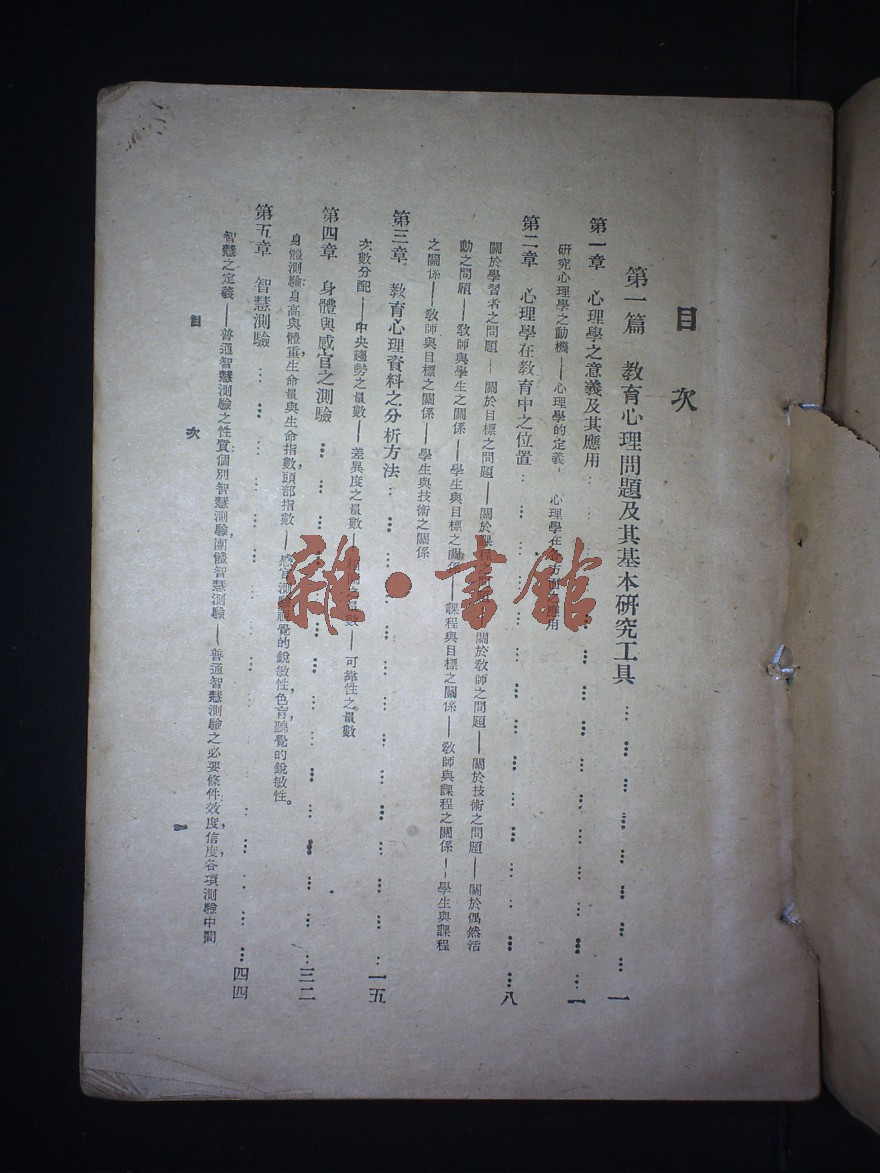 目次
第一篇 教育心理問題及其基本研究工具……………………一
第一章 心理學之意義及其應用……………………一
研究心理學之動機——心理學的定義 心理學在各方面之應用
第二章 心理學在教育中之位置……………………八
關於學習者之問題——關於目標之問題——關於課程之問題——關於敎師之問題——關於技術之問題——關於偶然活
動之問題——敎師與學生之關係——學生與目標之關係——課程與目標之關係——敎師與課程之關係——學生與課程
之關係——敎師與目標之關係——學生與技術之關係
第三章 教育心理資料之分析方法……………………一五
次數分配——中央趨勢之量數——差異度之量數——相關之量數——可靠性之量數
第四章 身體與感官之測驗……………………三二
身體測驗:身高與體重,生命量與生命指數,頭部指數——感官測驗:視覺的銳敏性,色盲,聽覺的銳敏性。
第五章 智慧測驗……………………四四
智慧之定義——普通智慧測驗之性質:個別智慧測驗,團體智慧測驗——普通智慧測驗之必要條件:效度,信度,各項測驗中間
目次
一
雜·書館